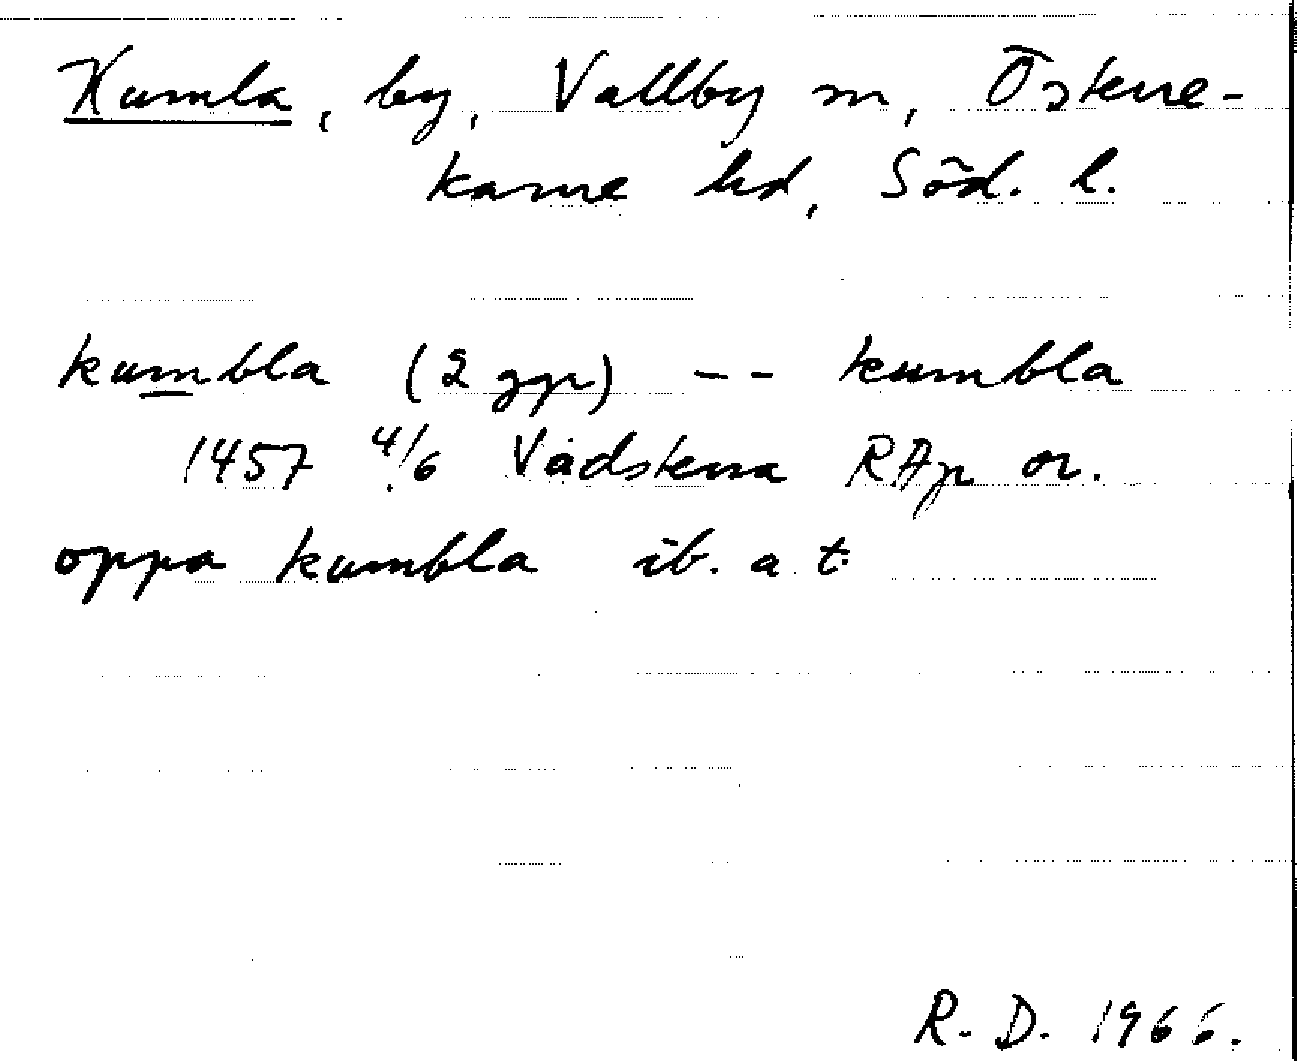 Kumla, by, Vallby sn, Österre-
karne hd, Söd. l.
kumbla (2 ggr) -- kumbla
1457 4/6 Vadstena RAp or.
oppa kumbla ib. a t.
R. D. 1966.